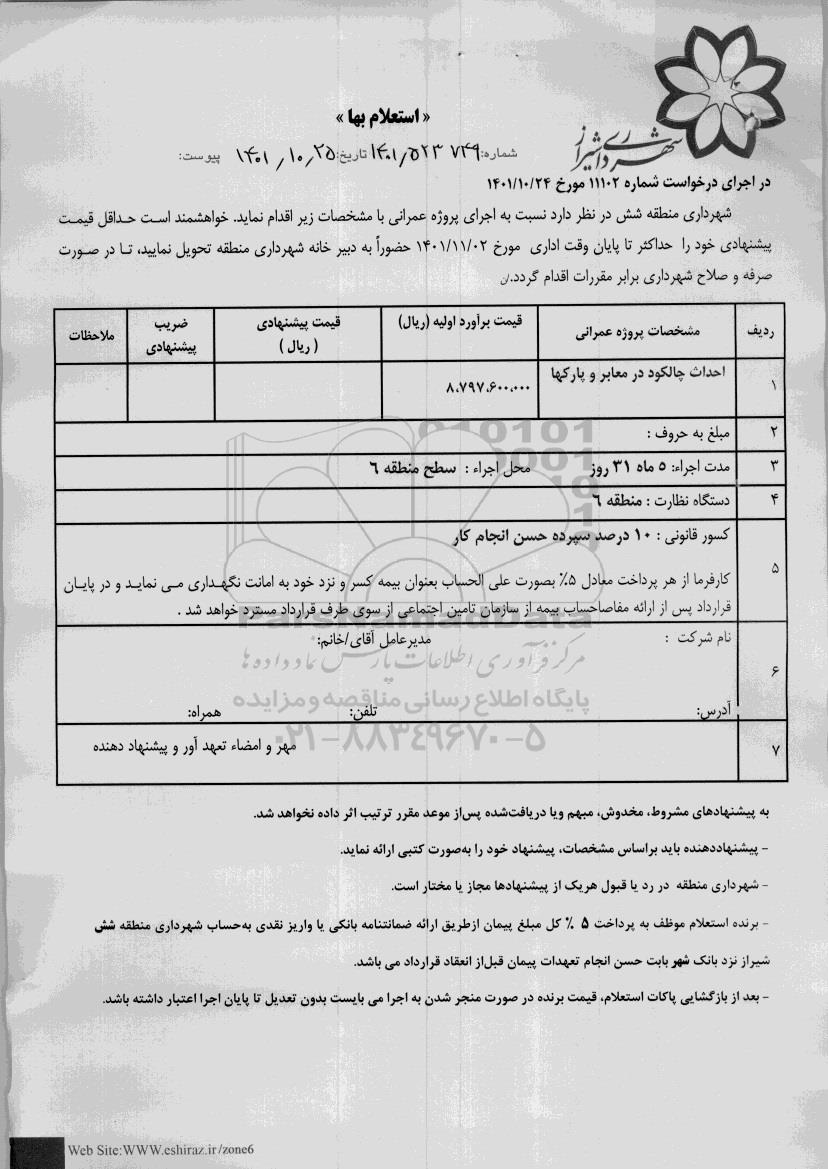 شهرداری شیراز
« استعلام بها »
شماره: ۱۴۰۱٫۵۲۳ ۷۴۹ تاریخ: ۱۴۰۱٫۱۰٫۲۵ پیوست:
در اجرای درخواست شماره ۱۱۱۰۲ مورخ ۱۴۰۱/۱۰/۲۴
شهرداری منطقه شش در نظر دارد نسبت به اجرای پروژه عمرانی با مشخصات زیر اقدام نماید. خواهشمند است حداقل قیمت
پیشنهادی خود را حداکثر تا پایان وقت اداری مورخ ۱۴۰۱/۱۱/۰۲ حضوراً به دبیر خانه شهرداری منطقه تحویل نمایید، تا در صورت
صرفه و صلاح شهرداری برابر مقررات اقدام گردد.ن
ردیف مشخصات پروژه عمرانی قیمت برآورد اولیه (ریال) قیمت پیشنهادی ( ریال ) ضریب پیشنهادی ملاحظات
۱ احداث چالکود در معابر و پارکها ۸،۷۹۷،۶۰۰،۰۰۰
۲ مبلغ به حروف :
۳ مدت اجراء: ۵ ماه ۳۱ روز محل اجراء : سطح منطقه ۶
۴ دستگاه نظارت : منطقه ۶
کسور قانونی : ۱۰ درصد سپرده حسن انجام کار
۵ کارفرما از هر پرداخت معادل ۵٪ بصورت علی الحساب بعنوان بیمه کسر و نزد خود به امانت نگهداری می نماید و در پایان
قرارداد پس از ارائه مفاصاحساب بیمه از سازمان تامین اجتماعی از سوی طرف قرارداد مسترد خواهد شد .
ParsNamadData
نام شرکت : مدیرعامل آقای/خانم:
مرکز فرآوری اطلاعات پارس نماد داده ها
۶
پایگاه اطلاع رسانی مناقصه و مزایده
آدرس: تلفن: همراه:
۰۲۱-۸۸۳۴۹۶۷۰-۵
۷ مهر و امضاء تعهد آور و پیشنهاد دهنده
به پیشنهادهای مشروط، مخدوش، مبهم ویا دریافت‌شده پس‌از موعد مقرر ترتیب اثر داده نخواهد شد.
- پیشنهاددهنده باید براساس مشخصات، پیشنهاد خود را به‌صورت کتبی ارائه نماید.
- شهرداری منطقه در رد یا قبول هریک از پیشنهادها مجاز یا مختار است.
- برنده استعلام موظف به پرداخت ۵ ٪ کل مبلغ پیمان ازطریق ارائه ضمانتنامه بانکی یا واریز نقدی به‌حساب شهرداری منطقه شش
شیراز نزد بانک شهر بابت حسن انجام تعهدات پیمان قبل‌از انعقاد قرارداد می باشد.
- بعد از بازگشایی پاکات استعلام، قیمت برنده در صورت منجر شدن به اجرا می بایست بدون تعدیل تا پایان اجرا اعتبار داشته باشد.
Web Site:WWW.eshiraz.ir/zone6